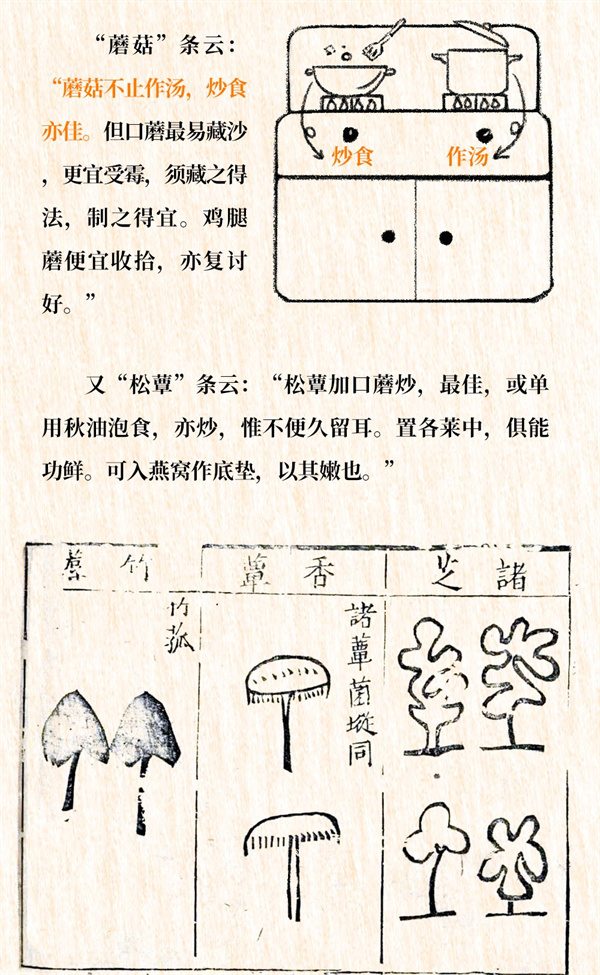 “蘑菇”条云：
“蘑菇不止作汤，炒食
亦佳。但口蘑最易藏沙
，更宜受霉，须藏之得
法，制之得宜。鸡腿
蘑便宜收拾，亦复讨
好。”
炒食
作汤
又“松蕈”条云：“松蕈加口蘑炒，最佳，或单
用秋油泡食，亦炒，惟不便久留耳。置各莱中，俱能
功鲜。可入燕窝作底垫，以其嫩也。”
諸芝
香蕈
諸蕈菌𡏖同
竹蓐
竹菰